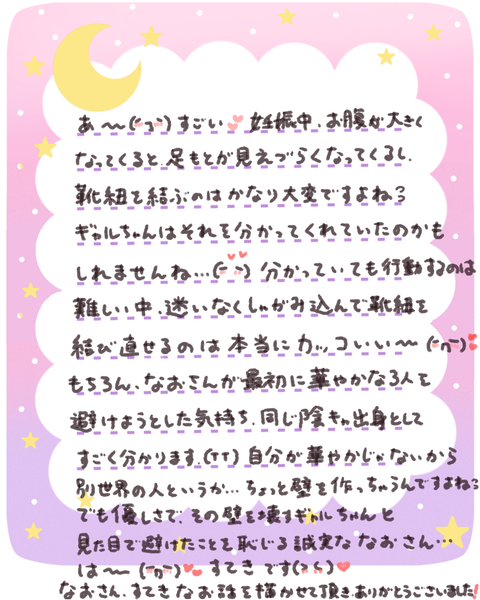 あ〜〜(ˉ▽ˉ)すごい💕妊娠中、お腹が大きく
なってくると、足もとが見えづらくなってくるし、
靴紐を結ぶのはかなり大変ですよね？
ギャルちゃんはそれを分かってくれていたのかも
しれませんね…(ˉ ˘ ˉ) 分かっていても行動するのは
難しい中、迷いなくしゃがみ込んで靴紐を
結び直せるのは本当にカッコいい〜(ˉ▽ˉ)
もちろん、なおさんが最初に華やかなる人を
避けようとした気持ち、同じ陰キャ出身として
すごく分かります。(TT)自分が華やかじゃないから
別世界の人というか…ちょっと壁を作っちゃうんですよね？
でも優しさで、その壁を壊すギャルちゃんと
見た目で避けたことを恥じる誠実ななおさん…
は〜〜(ˉ▽ˉ)💕すてきです(> <)❤
なおさん、すてきなお話を描かせて頂き、ありがとうございました!